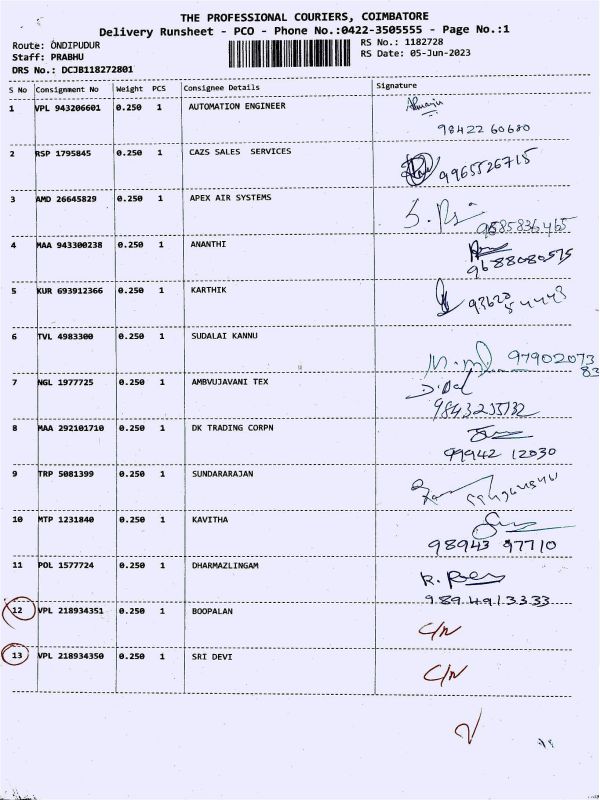 THE PROFESSIONAL COURIERS, COIMBATORE
Delivery Runsheet - PCO - Phone No.:0422-3505555 - Page No.:1
Route: ONDIPUDUR RS No.: 1182728
Staff: PRABHU RS Date: 05-Jun-2023
DRS No.: DCJB118272801
S No Consignment No Weight PCS Consignee Details Signature
1 VPL 943206601 0.250 1 AUTOMATION ENGINEER
98422 60680
2 RSP 1795845 0.250 1 CAZS SALES SERVICES
9965526715
3 AMD 26645829 0.250 1 APEX AIR SYSTEMS
9885836465
4 MAA 943300238 0.250 1 ANANTHI
9688080575
5 KUR 693912366 0.250 1 KARTHIK
6 TVL 4983300 0.250 1 SUDALAI KANNU
97902073
83
7 NGL 1977725 0.250 1 AMBVUJAVANI TEX
8 MAA 292101710 0.250 1 DK TRADING CORPN
99942 12030
9 TRP 5081399 0.250 1 SUNDARARAJAN
10 MTP 1231840 0.250 1 KAVITHA
98943 97710
11 POL 1577724 0.250 1 DHARMAZLINGAM
9894913333
12 VPL 218934351 0.250 1 BOOPALAN
C/N
13 VPL 218934350 0.250 1 SRI DEVI
C/N